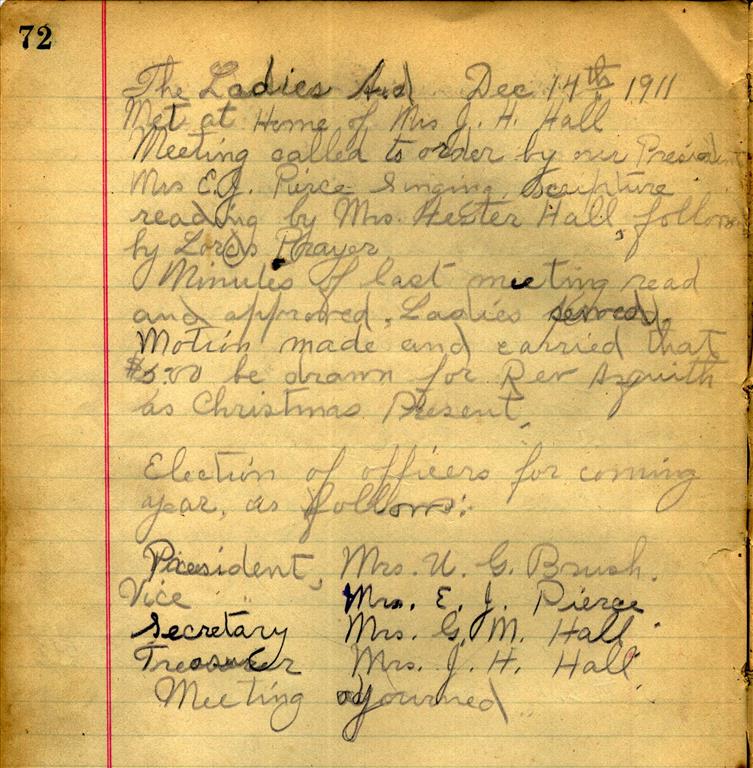 72
The Ladies Aid Dec 14th 1911
Met at Home of Mrs J. H. Hall
Meeting called to order by our President
Mrs E. J. Pierce Singing, Scripture
reading by Mrs. Hester Hall, follow
by Lords Prayer
Minutes of last meeting read
and approved, Ladies served.
Motion made and carried that
$5.00 be drawn for Rev Asquith
as Christmas Present.
Election of officers for coming
year, as follows:
President, Mrs. U. G. Brush.
Vice " Mrs. E. J. Pierce
Secretary Mrs. G. M. Hall
Treasurer Mrs. J. H. Hall
Meeting adjourned